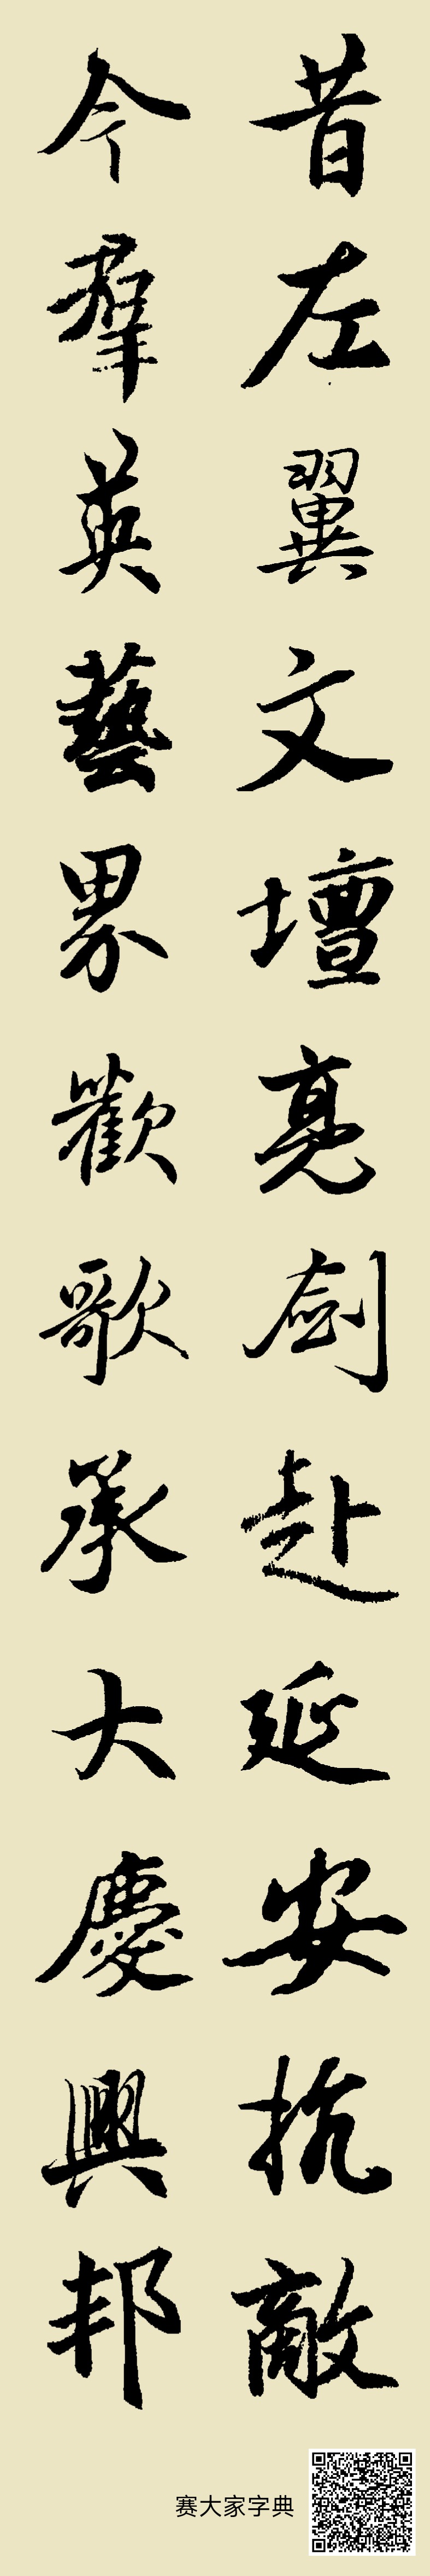 昔左翼文壇亮剑赴延安抗敵
今羣英藝界歡歌承大慶興邦
赛大家字典